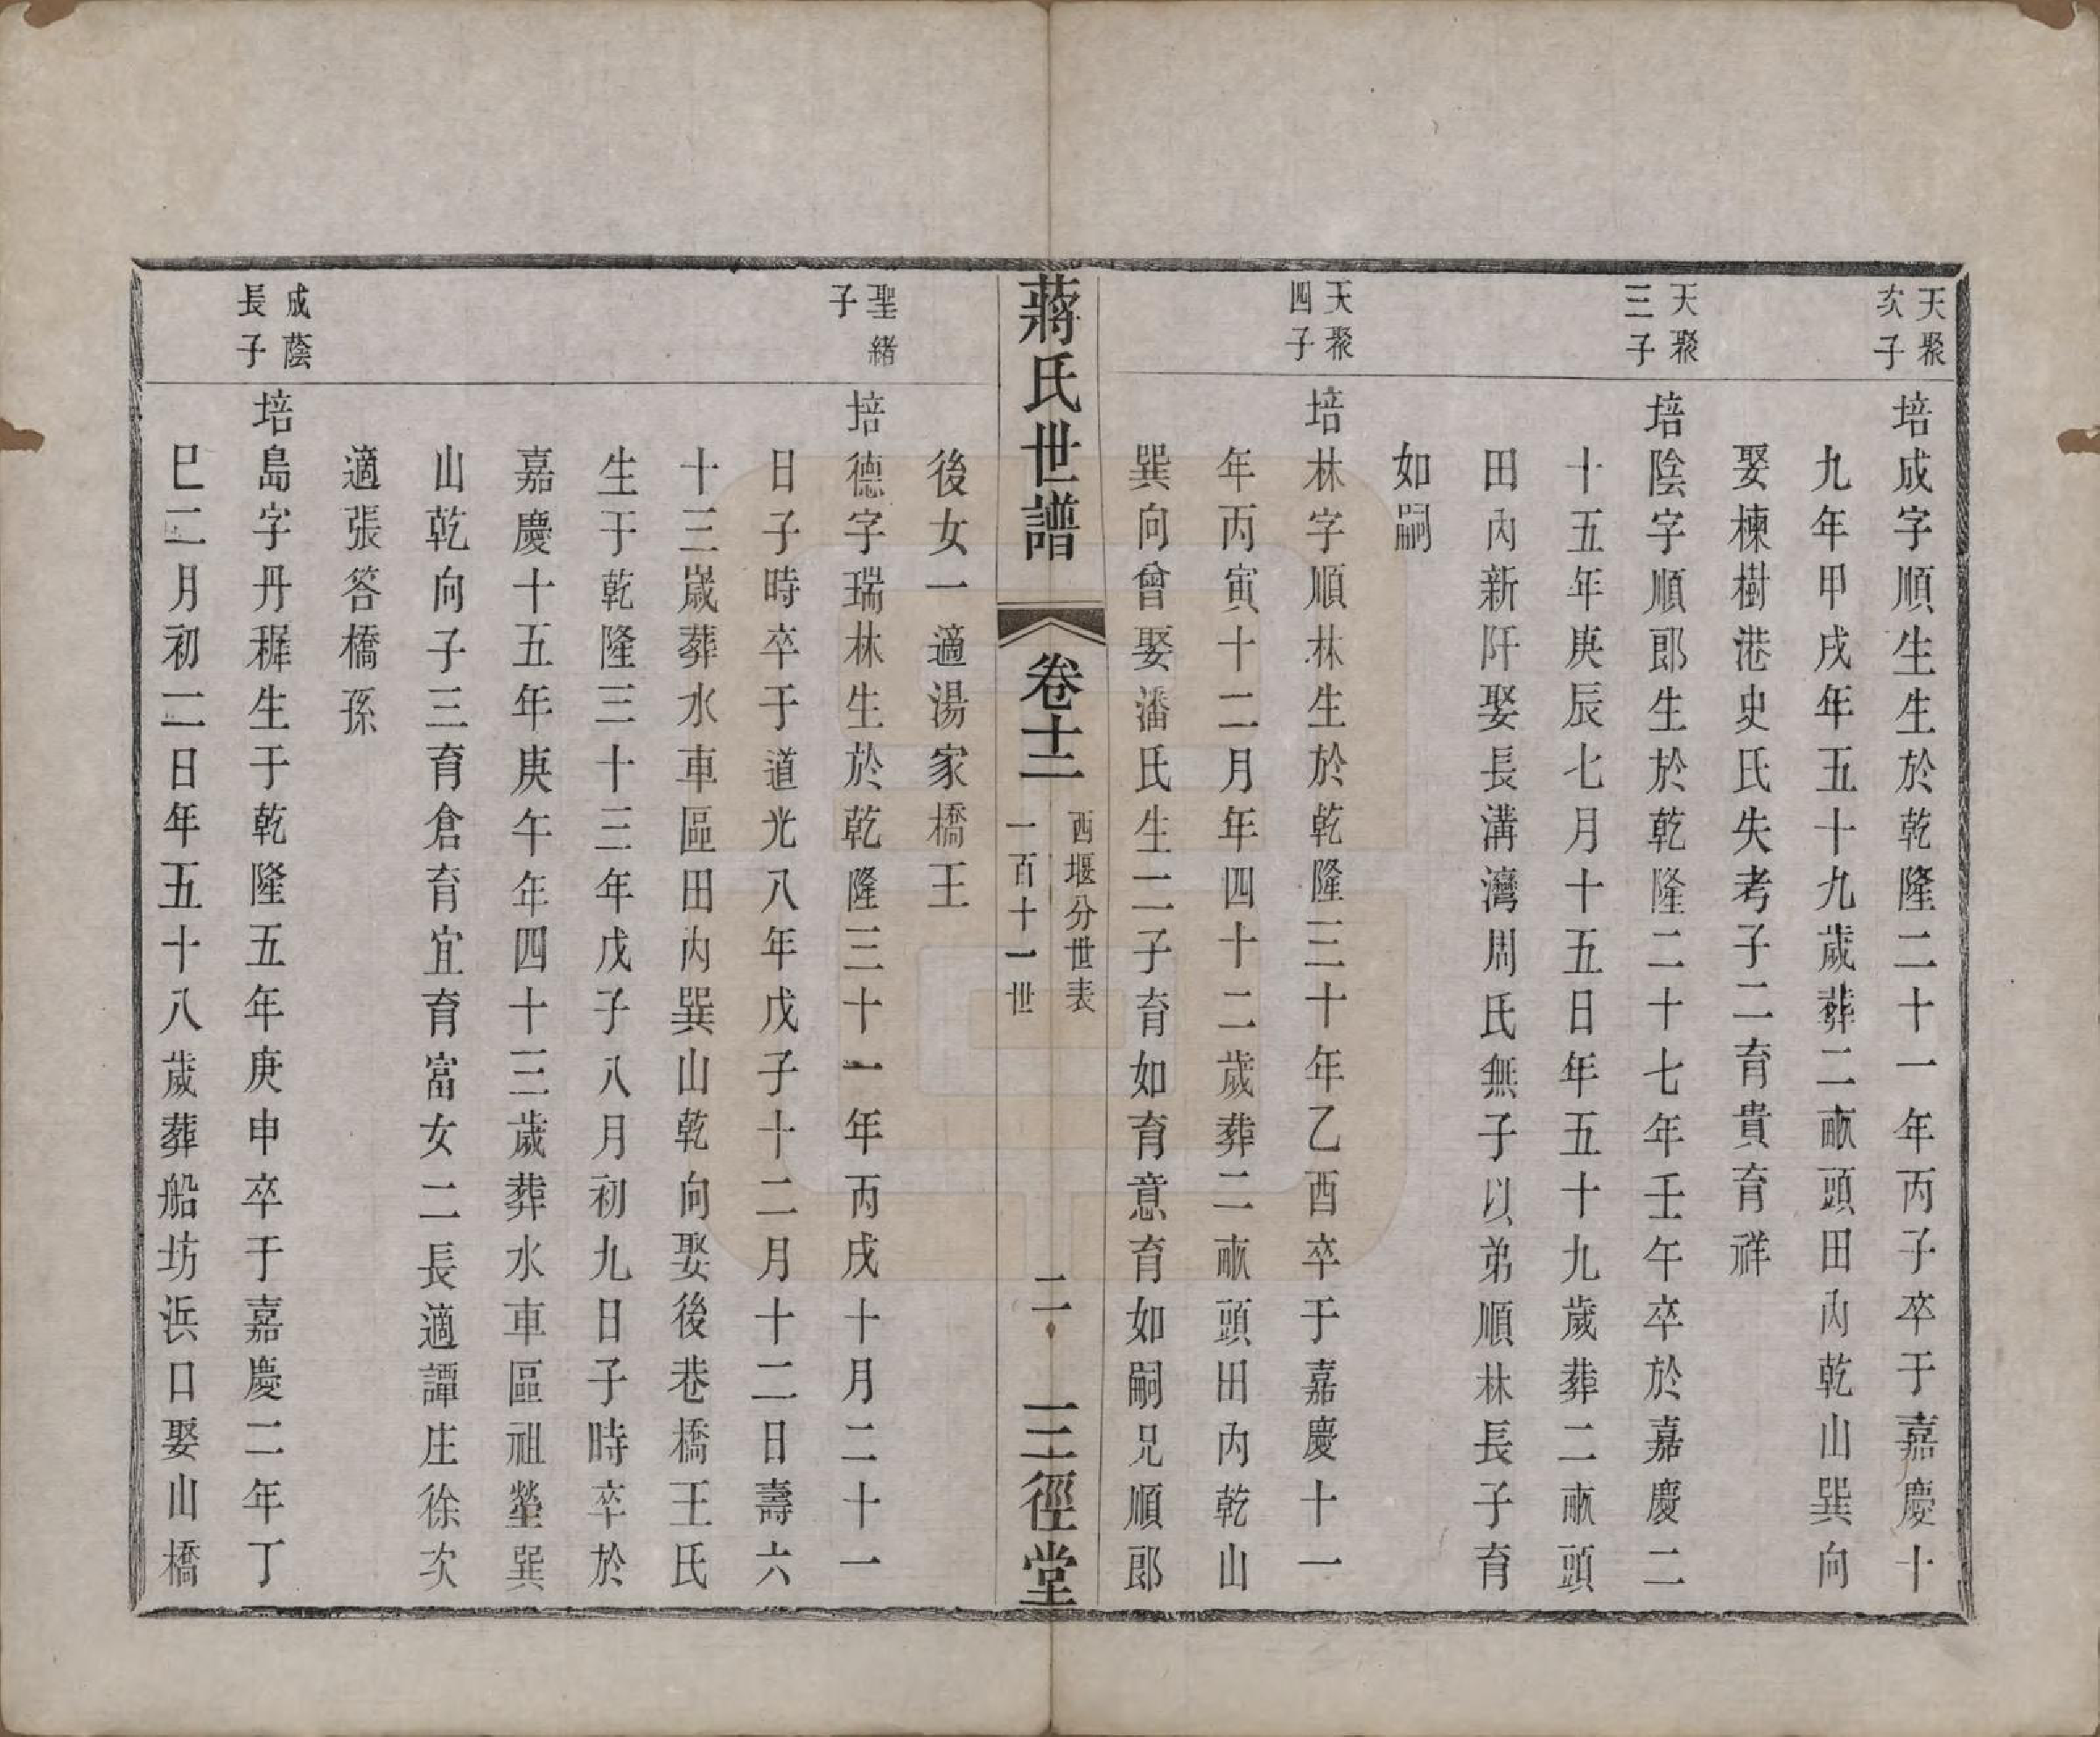 天聚
次子
培成字順生生於乾隆二十一年丙子卒于嘉慶十
九年甲戌年五十九歲葬二畝頭田內乾山巽向
娶楝樹港史氏失考子二育貴育祥
天聚
三子
培陰字順郎生於乾隆二十七年壬午卒於嘉慶二
十五年庚辰七月十五日年五十九歲葬二畝頭
田內新阡娶長溝灣周氏無子以弟順林長子育
如嗣
天聚
四子
培林字順林生於乾隆三十年乙酉卒于嘉慶十一
年丙寅十二月年四十二歲葬二畝頭田內乾山
巽向曾娶潘氏生二子育如育意育如嗣兄順郎
蔣氏世譜
卷十二
西堰分世表
一百十一世
二
三徑堂
後女一適湯家橋王
聖緒
子
培德字瑞林生於乾隆三十一年丙戌十月二十一
日子時卒于道光八年戊子十二月十二日壽六
十三歲葬水車區田內巽山乾向娶後巷橋王氏
生于乾隆三十三年戊子八月初九日子時卒於
嘉慶十五年庚午年四十三歲葬水車區祖塋巽
山乾向子三育倉育宜育富女二長適譚庄徐次
適張答橋孫
成蔭
長子
培島字丹穉生于乾隆五年庚申卒于嘉慶二年丁
巳二月初二日年五十八歲葬船坊浜口娶山橋